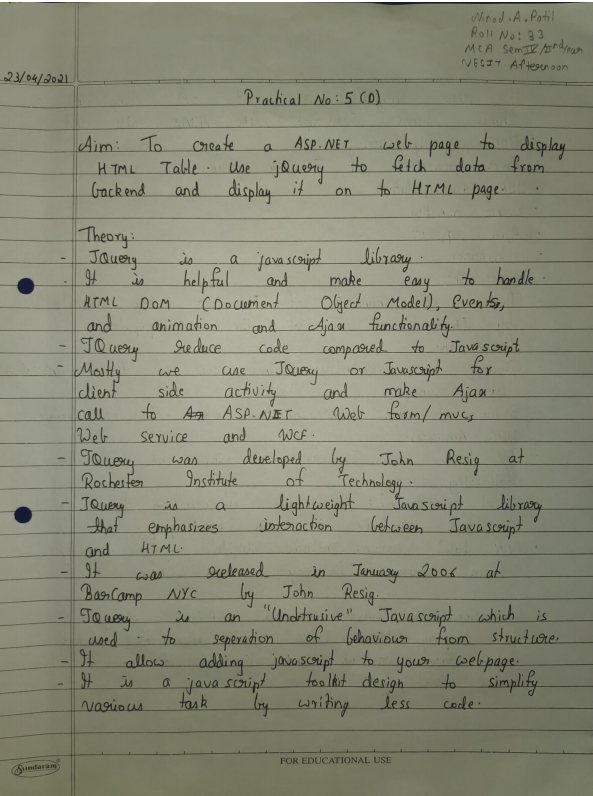 Vinod.A.Patil
Roll No: 33
MCA Sem IV/IInd year
NESIT Afternoon
23/04/2021
Practical No: 5 (D)
Aim: To create a ASP.NET web page to display
HTML Table. Use jQuery to fetch data from
backend and display it on to HTML page.
Theory:
- JQuery is a javascript library.
- It is helpful and make easy to handle
HTML DOM (Document Object Model), Events,
and animation and Ajax functionality.
- JQuery reduce code compared to Javascript
- Mostly we use JQuery or Javascript for
client side activity and make Ajax
call to ASP.NET Web form/mvc,
Web service and WCF.
- JQuery was developed by John Resig at
Rochester Institute of Technology.
- JQuery is a lightweight Javascript library
that emphasizes interaction between Javascript
and HTML.
- It was released in January 2006 at
BarCamp NYC by John Resig.
- JQuery is an "Undtrusive" Javascript which is
used to seperation of behaviour from structure.
- It allow adding javascript to your webpage.
- It is a javascript toolkit design to simplify
various task by writing less code.
Sundaram
FOR EDUCATIONAL USE